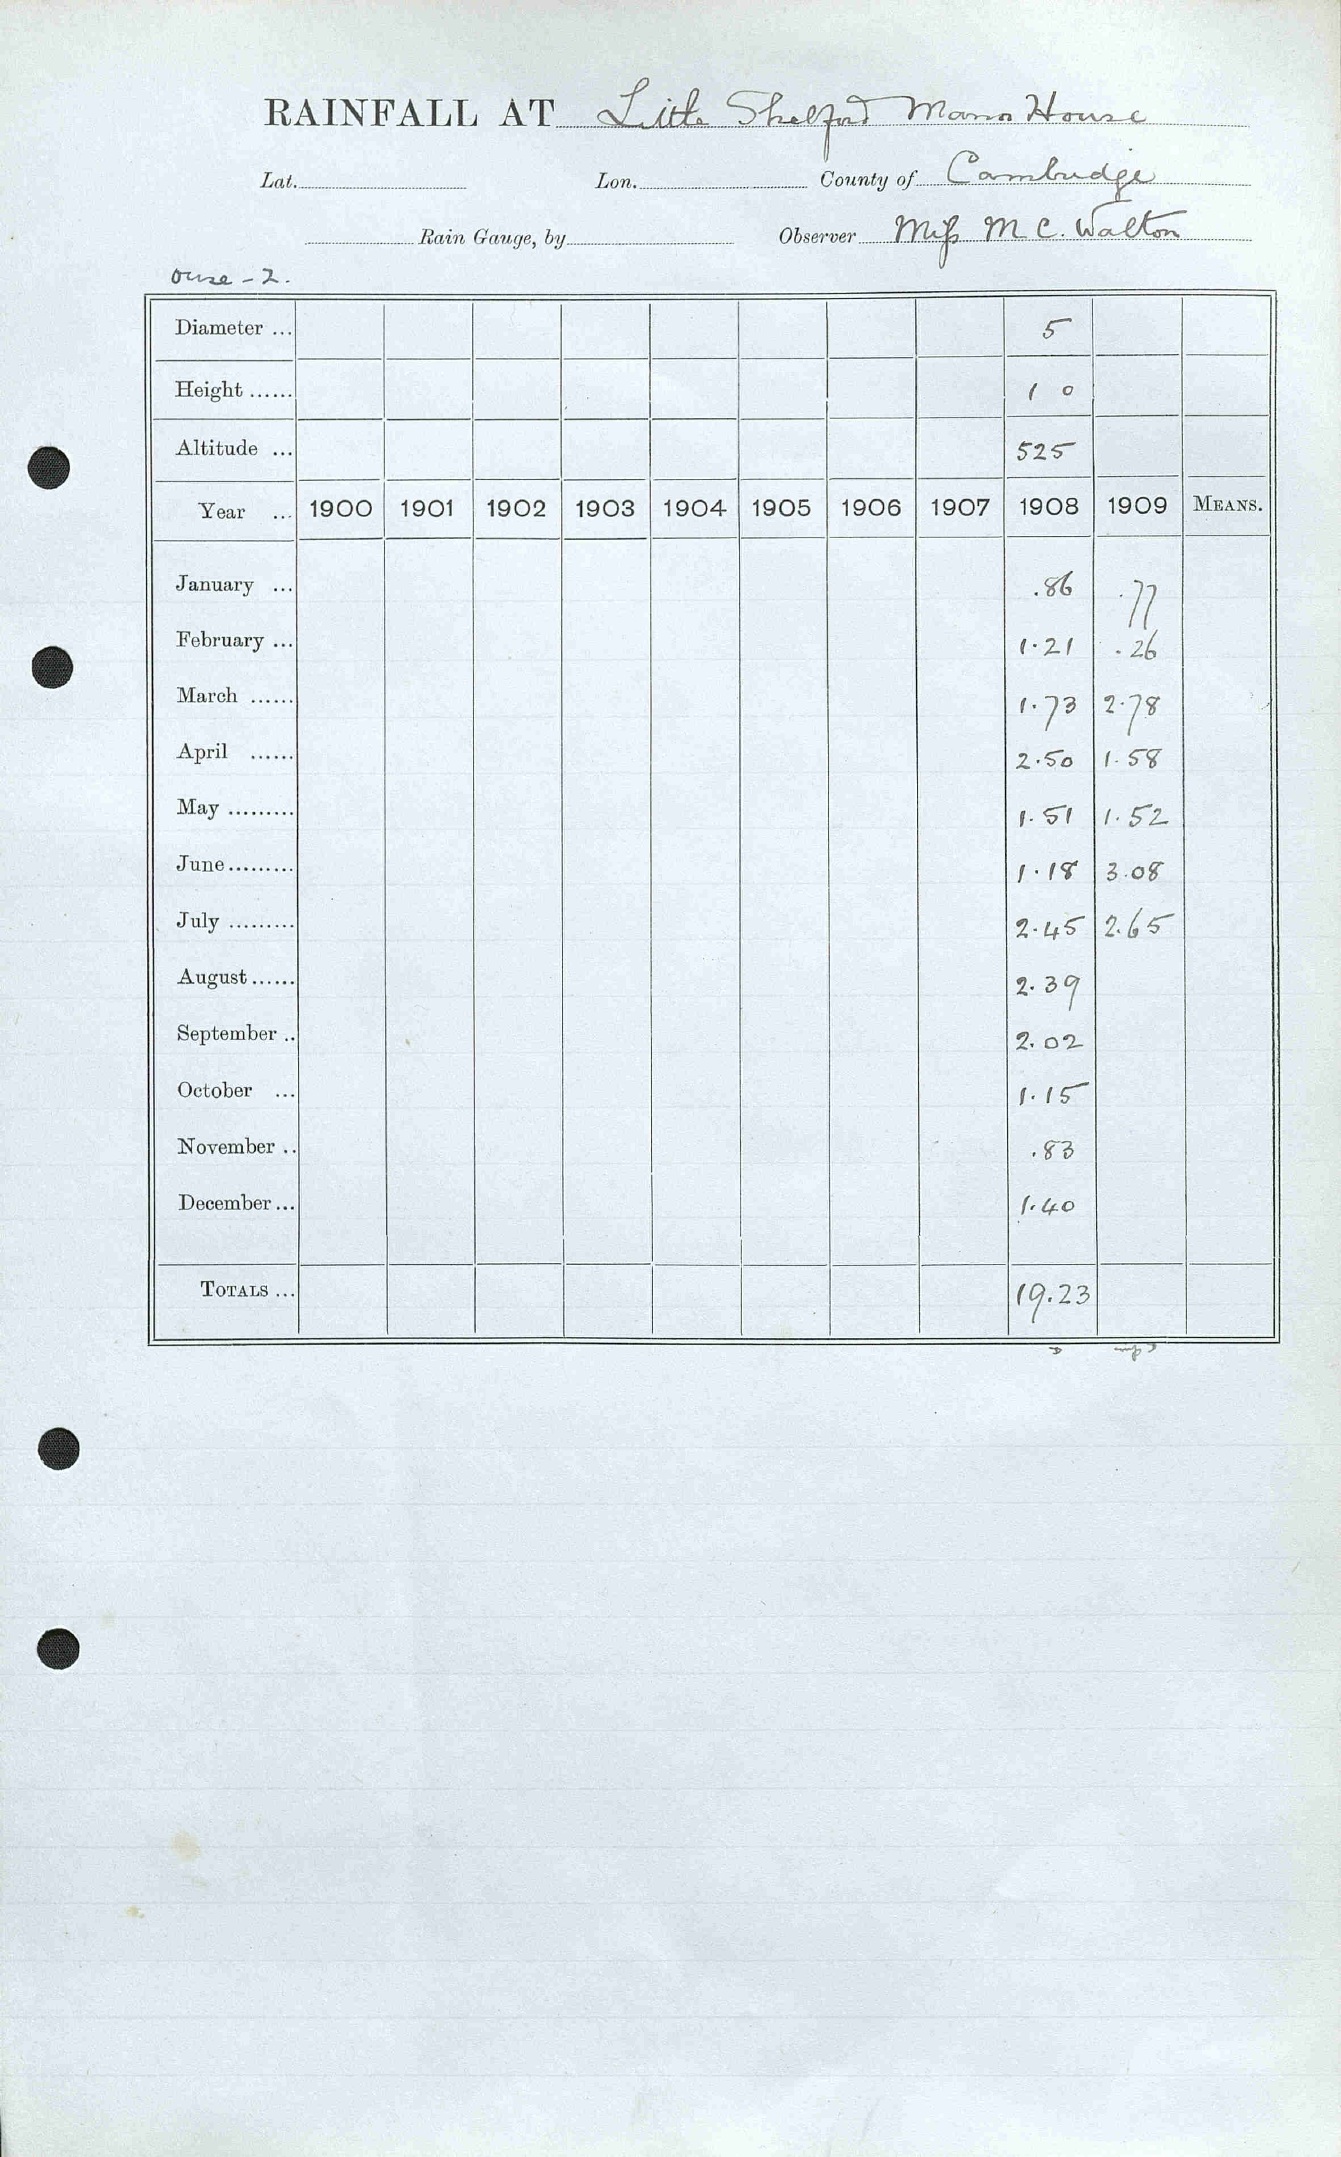 RAINFALL AT Little Shelford Manor House
Lat. Lon. County of Cambridge
Rain Gauge, by Observer Miss M C. Walton
Ouse - 2.
Diameter ... 5
Height ...... 1 0
Altitude ... 525
Year ... 1900 1901 1902 1903 1904 1905 1906 1907 1908 1909 MEANS.
January ... .86 .77
February ... 1.21 .26
March ...... 1.73 2.78
April ...... 2.50 1.58
May ......... 1.51 1.52
June ......... 1.18 3.08
July ......... 2.45 2.65
August ...... 2.39
September .. 2.02
October ... 1.15
November .. .83
December ... 1.40
TOTALS ... 19.23